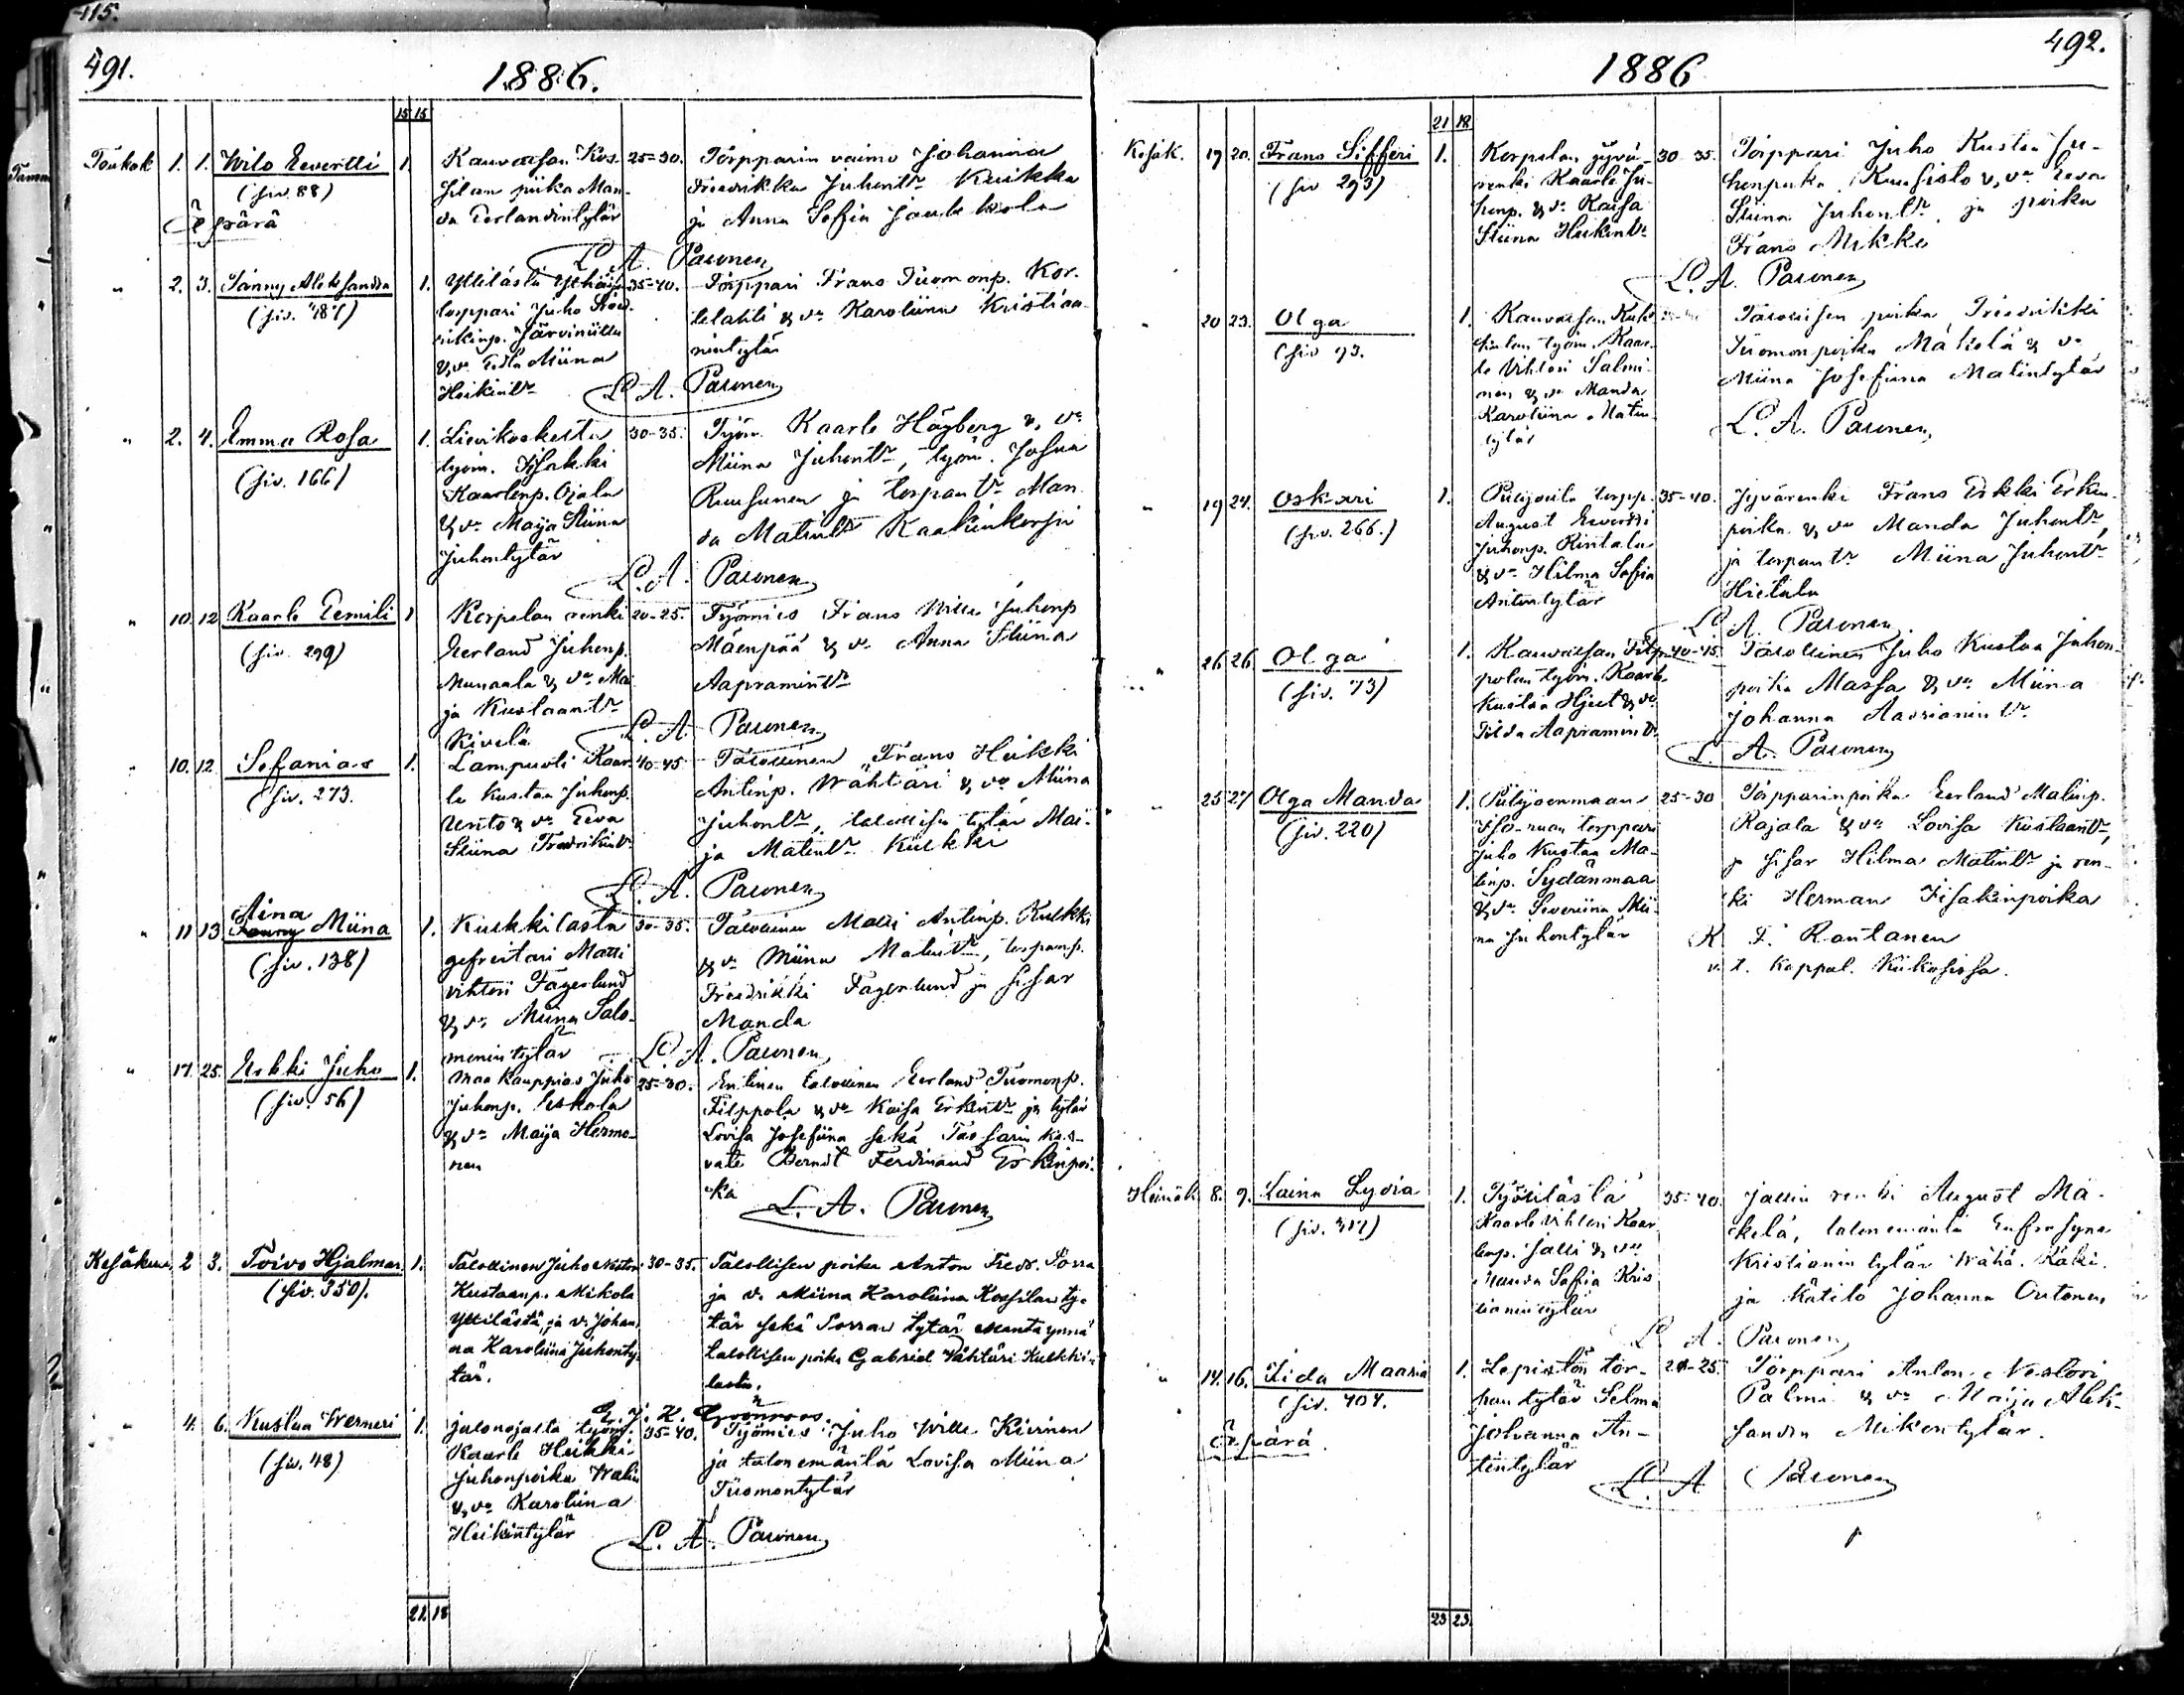 115.
491.
1886.
15 15
Toukok 1. 1. Wilo Eevertti 1.
(siv. 88)
Äpärä
Kauvatsan Kos.
silan piika Man-
da Eerlandintytär
25-30.
Törpparin vaimo Johanna
Fredrikka Juhontr Kuikka
ja Anna Sofia Jaakkola
L. A. Paronen
" 2. 3. Fanny Aleksandra 1.
(siv. 487)
torppari Juho
Järviniittu
& va Eeda Miina
Heikintr
35-40.
Torppari Frans Tuomonp. Kor-
telahti & va Karoliina Kristian-
nintytär
L. A. Paronen
" 2. 4. Emma Rosa 1.
(siv. 166)
Lievikoskelta
työm. Iisakki
Kaarlenp. Ojala
& va Maija Stiina
Juhontytär
30-35.
Työm. Kaarle Högberg & va
Miina Juhontr, työm. Josua
Ruusunen ja torpantr Man-
da Matintr
L. A. Paronen
" 10. 12 Kaarle Eemili 1
(siv. 299)
Korpelan renki
Eerland Juhonp.
Munaala & va Mai-
ja Kustaantr
Kivelä
20-25.
Työmies Frans Wille Juhonp
Mäenpää & va Anna Stiina
Aapramintr
L. A. Paronen
" 10. 12. Sefanias 1.
(siv. 273.
Lampuoti Kaar-
le Kustaa Juhonp.
Unto & va Eeva
Stiina Fredrikintr
40-45
Talollinen Frans Heikki
Antinp. Wähtäri & va Miina
Juhontr, talollisen tytär Mai-
ja Matintr Kulkki
L. A. Paronen
" 11 13 Aina
Fanny Miina 1.
(siv. 138)
Kulkkilasta
gefreitari Matti
Vihtori Fagerlund
& va Miina Salo-
monintytär
30-35.
Talollinen Matti Antinp. Kulkki
& va Miina Matintr, torpanp.
Fredrikki Fagerlund ja sisar
Manda
L. A. Paronen
" 17. 25. Erkki Juho 1.
(siv. 56)
Maakauppias Juho
Juhonp. Eskola
& va Maija Hermo-
nen
25-30.
Entinen talollinen Eerland Tuomonp.
Filppola & va Kaisa Erkintr ja tytär
Lovisa Josefiina sekä
Berndt Ferdinand Erkinpoi-
ka
L. A. Paronen
Kesäkuu 2 3. Toivo Hjalmar 1.
(siv. 350).
Talollinen Juho Nestori
Kustaanp. Mikola
Yttilästä ja v. Johan-
na Karoliina Juhonty-
tär.
30-35.
Talollisen poika Anton Fredr. Sorra
ja v. Miina Karoliina Kossilan ty-
tär sekä Sorran tytär Manta ynnä
talollisen poika Gabriel Vähtäri Kulkki-
lasta.
" 4. 6. Kustaa Werneri 1.
(siv. 48)
Jalonojalta työm.
Kaarle Heikki
Juhonpoika Walin
& va Karoliina
Heikintytär
35-40.
Työmies Juho Wille Kivinen
ja talon emäntä Lovisa Miina
Tuomontytär
L. A. Paronen
21 18
492.
1886
21 18
Kesäk. 19 20. Frans Sifferi 1.
(siv 293)
Korpelan jyvä-
renki Kaarle Ju-
honp. & va Kaisa
Stiina Heikintr
30-35.
Torppari Juho Kustaa Ju-
honpoika Kuusisto & va Eeva
Stiina Juhontr ja poika
Frans Mikki
L. A. Paronen
" 20 23. Olga 1.
(siv 73.
työm. Kaar-
le Vihtori Salmi-
nen & va Manda
Karoliina Matin-
tytär
Talollisen poika Fredrikki
Tuomonpoika Mäkelä & va
Miina Josefiina Matintytär
L. A. Paronen
" 19 24. Oskari 1.
(siv. 266.)
torpp.
August Eevertti
Juhonp. Rintala
& va Hilma Sofia
Antintytär
35-40.
Jyvärenki Frans Erkki Erkin-
poika & va Manda Juhontr,
ja torpantr Miina Juhontr
Hietala
L. A. Paronen
" 26 26 Olga 1.
(siv. 73)
Kauvatsan Filp-
polan työm. Kaarle
Kustaa Hjelt & va
Tilda Aapramintr
40-45.
Talollinen Juho Kustaa Juhon-
poika Massa & va Miina
Johanna Aadrianintr
L. A. Paronen
" 25 27 Olga Manda 1.
(siv. 220)
Piilijoenmaan
torppari
Juho Kustaa Ma-
tinp. Sydänmaa
& va Severiina Mii-
na Juhontytär
25-30
Torpparinpoika Eerland Matinp.
Rajala & va Lovisa Kustaantr,
ja sisar Hilma Matintr ja ren-
ki Herman Iisakinpoika
K F. Rantanen
v. t. Kappal. Kiikosissa.
Heinäk. 8. 9. Laina Lydia 1.
(siv. 317)
Työtilästä
Kaarle Vihtori Kaar-
lenp. Jalli & va
Manda Sofia Kris-
tianintytär
35-40.
Jallin renki August Mä-
kelä, talon emäntä Eufrosyne
Kristianintytär Wähä-Käki
ja kätilö Johanna Ortonen
L. A. Paronen
" 14. 16. Iida Maaria 1.
(siv. 404.
Äpärä.
Lepistön tor-
pan tytär Selma
Johanna An-
tintytär
20-25.
Torppari Anton Nestori
Palmi & va Maija Alek-
sandra Mikontytär.
L. A. Paronen
23 23.